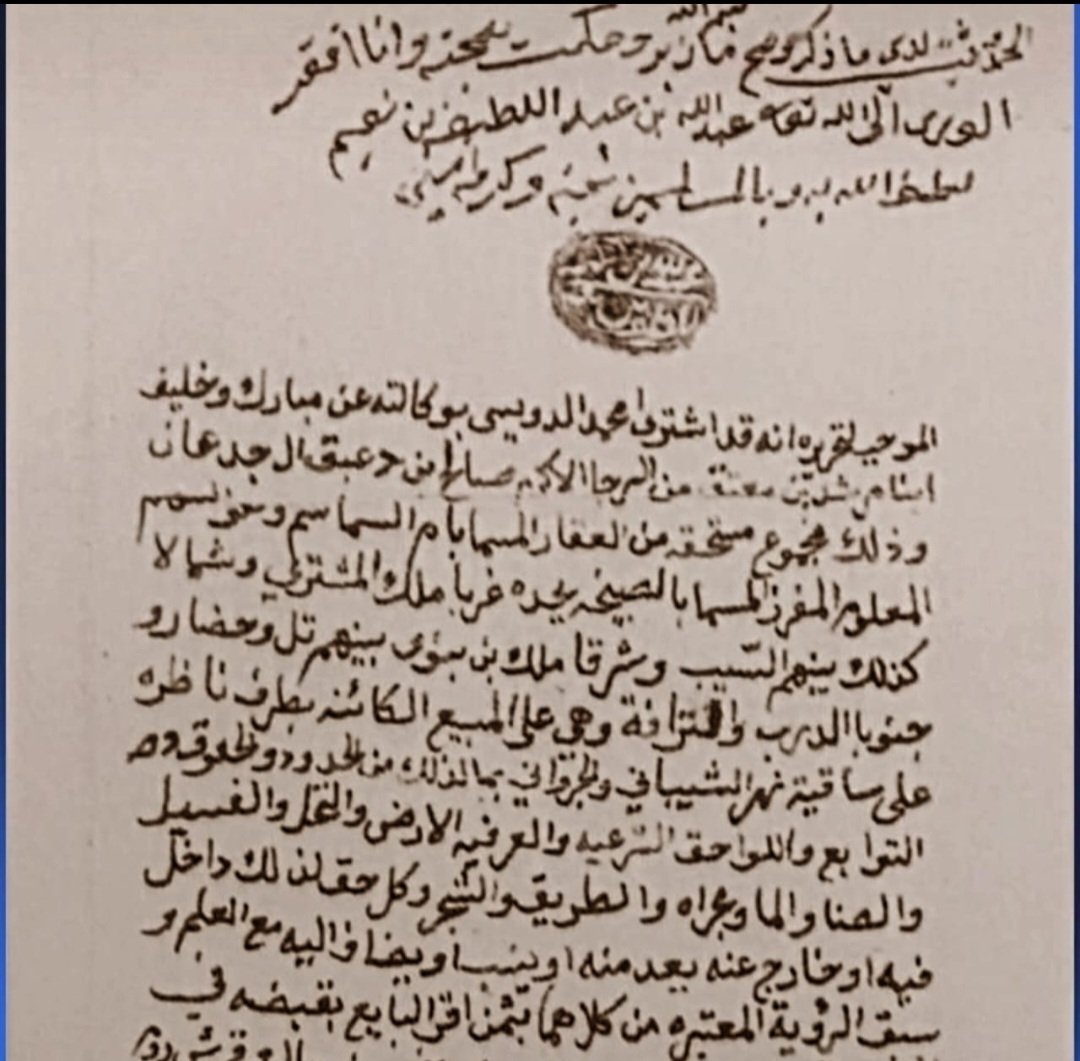 بسم الله
الحمد لله ثبت لدي ما ذكر وصح فيما زبر وحكمت بصحته وانا افقر
الورى الى الله تعالى عبدالله بن عبد اللطيف بن نعيم
لطف الله به وبالمسلمين بمنه وكرمه امين
الموجب لتحريره انه قد اشترى محمد الدويسي بوكالته عن مبارك وخليف
ابنا مرشد بن معتق من الرجا الاكرم صالح بن دعبق ال جدعان
وذلك مجموع مستحقه من العقار المسما بام السماسم وغز لسهم
المعلوم المفرز المسما بالصبيخه يحده غربا ملك المشتري وشمالا
كذلك بينهم السيب وشرقا ملك بن بينهم تل وحضار و
جنوبا الدرب وهي على المبيع الكائنه بطرف ناظره
على ساقية نهر الشيباني بما لذلك من الحدود والحقوق و
التوابع واللواحق الشرعيه والعرفيه الارض والنخل والفسيل
والصنا والما ومجراه والطريق والشجر وكل حق لذلك داخل
فيه او خارج عنه يعد منه او ينسب او يضاف اليه مع العلم و
سبق الرؤية المعتبره من كلاهما بثمن اقر البايع بقبضه في